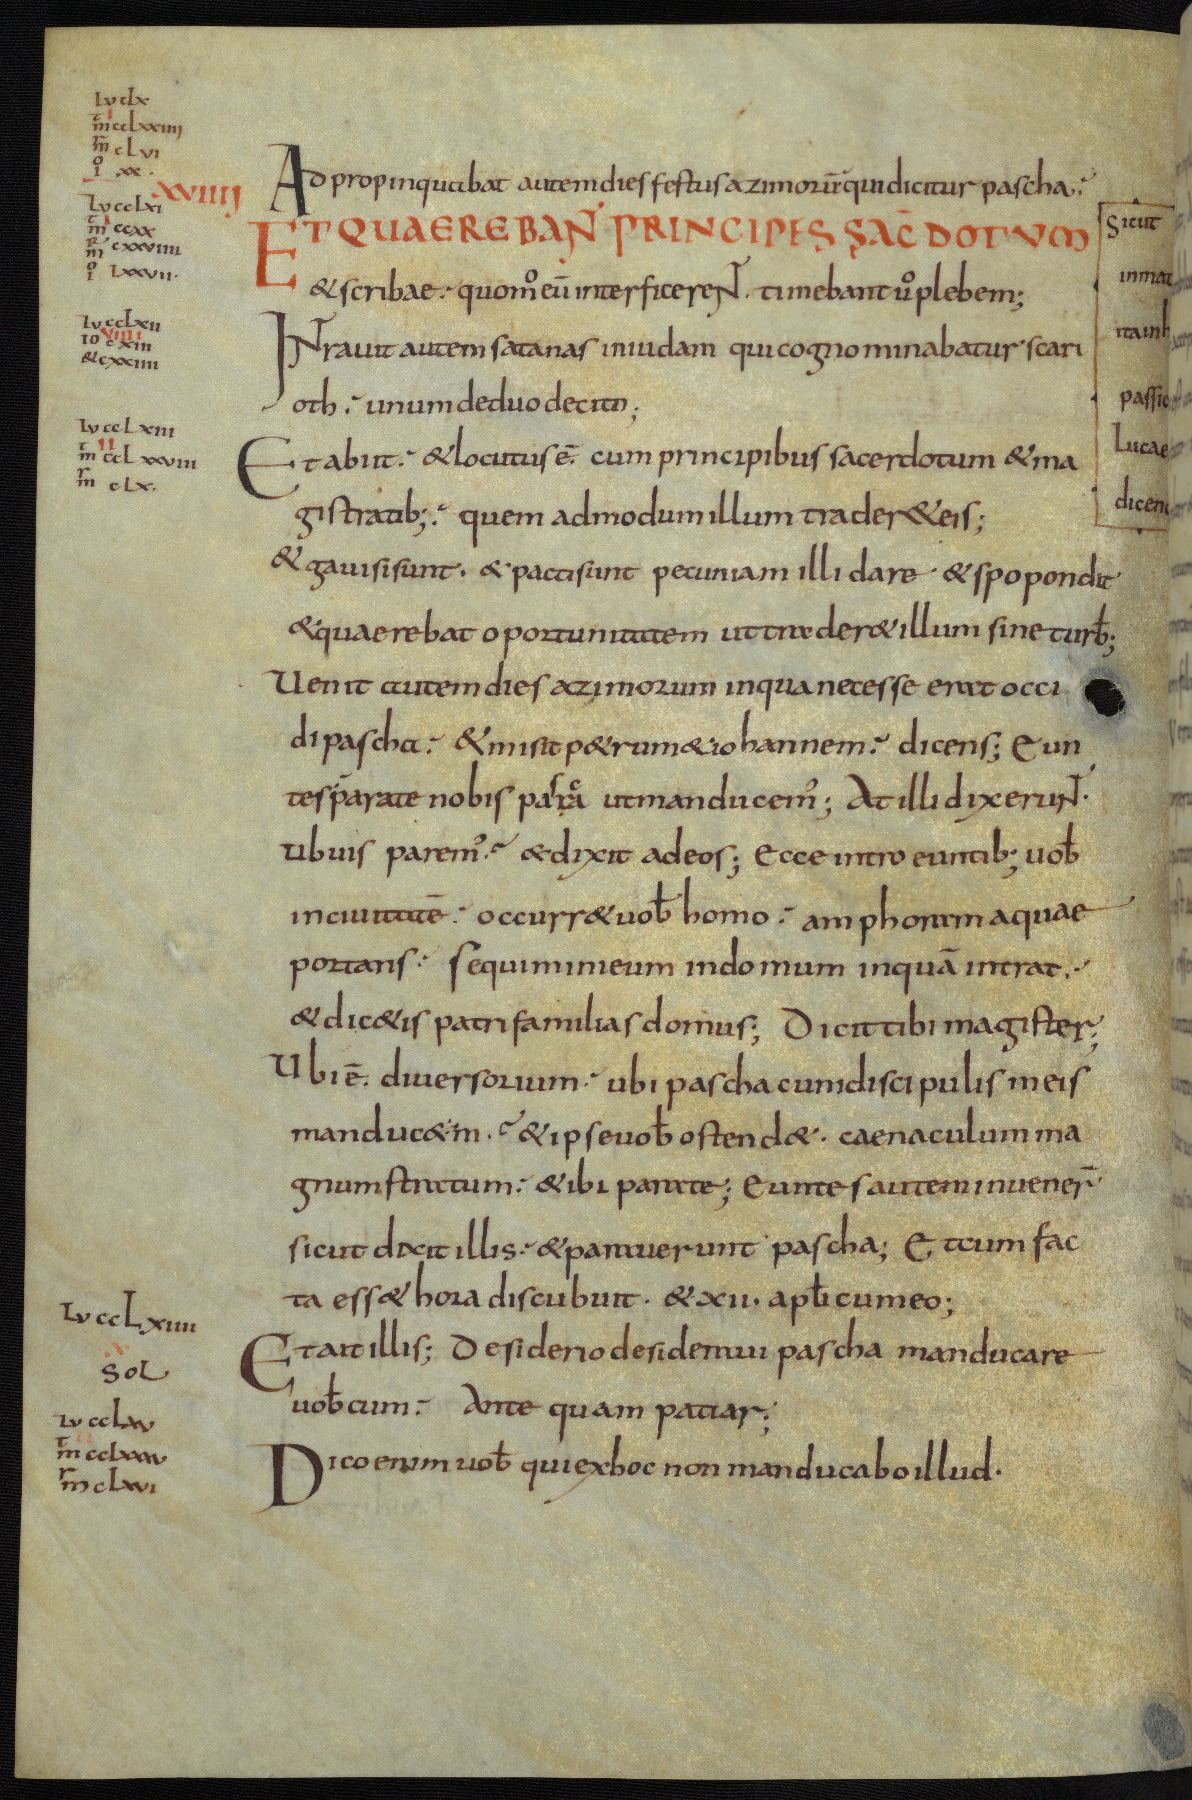 Lu cLx
mt ccLxxiiii
mr cLvi
io xx.
xxviiii
Lu ccLxi
mt ccxx
mr cxxviiii
io Lxxvii.
Lu ccLxii
io viiii cxiii
& cxxiiii
Lu ccLxiii
mt ii ccLxxviii
mr cLx.
Lu ccLxiiii
x
SoL
Lu ccLxv
mt ii ccLxxxv
mr cLxvi
Adpropinquabat autem dies festus azimorū qui dicitur pascha.
ET QUAEREBANT PRINCIPES SAC̄DOTVM
& scribae. quom̊ eū interficerent. timebant ů plebem;
Intrauit autem satanas in iudam qui cognominabatur scari
oth. unum de duodecim;
Et abiit. & locutus ē. cum principibus sacerdotum & ma
gistratib;. quem admodum illum trader& eis;
& gauisi sunt. & pacti sunt pecuniam illi dare & spopondit
& quaerebat oportunitatem ut trader& illum sine turb̄;
Uenit autem dies azimorum in qua necesse erat occi
di pascha. & misit p&rum & iohannem. dicens; Eun
tes p̄arate nobis pascha ut manducem᾿; At illi dixerunt.
ubi uis parem᾿. & dixit ad eos; Ecce intro euntib; uob̄
in ciuitatē. occurr& uob̄ homo. amphoram aquae
portans. sequimini eum in domum in quā intrat.
& dic&is patri familias domus; Dicit tibi magister;
Ubi ē. diuersorium. ubi pascha cum discipulis meis
manduc&m. & ipse uob̄ ostend&. caenaculum ma
gnum stratum. & ibi parate; Euntes autem inuener̄
sicut dixit illis. & parauerunt pascha; Et cum fac
ta ess& hora discubuit. & xii. apl̄i cum eo;
Et ait illis; Desiderio desideraui pascha manducare
uob̄cum. Ante quam patiar;
Dico enim uob̄ qui ex hoc non manducabo illud.
Sicut
ita in
passio
Lucae
dicen